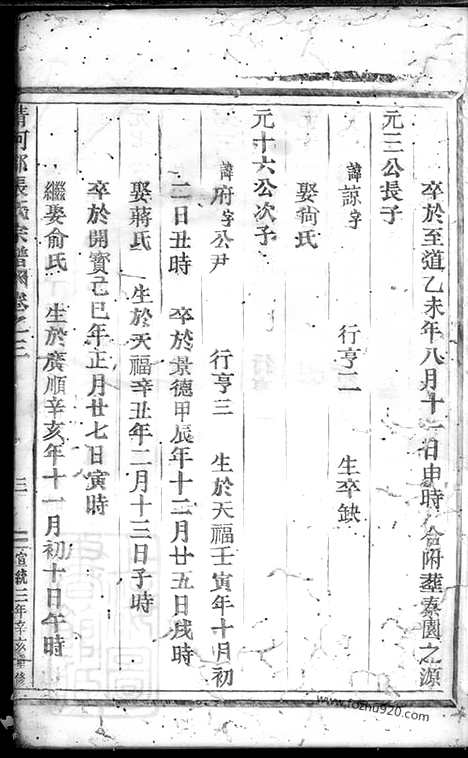 卒於至道乙未年八月十一日申時 合附葬秦園之源
元三公長子
諱諒字 行亨二 生卒缺
娶尙氏
元十六公次子
諱府字公尹 行亨三 生於天福壬寅年十月初
二日丑時 卒於景德甲辰年十二月廿五日戌時
娶蔣氏 生於天福辛丑年二月十三日子時
卒於開寶己巳年正月廿七日寅時
繼娶俞氏 生於廣順辛亥年十一月初十日午時
清河郡張氏宗譜 卷之三 三 宣統三年辛亥重修
www.fozhu920.com